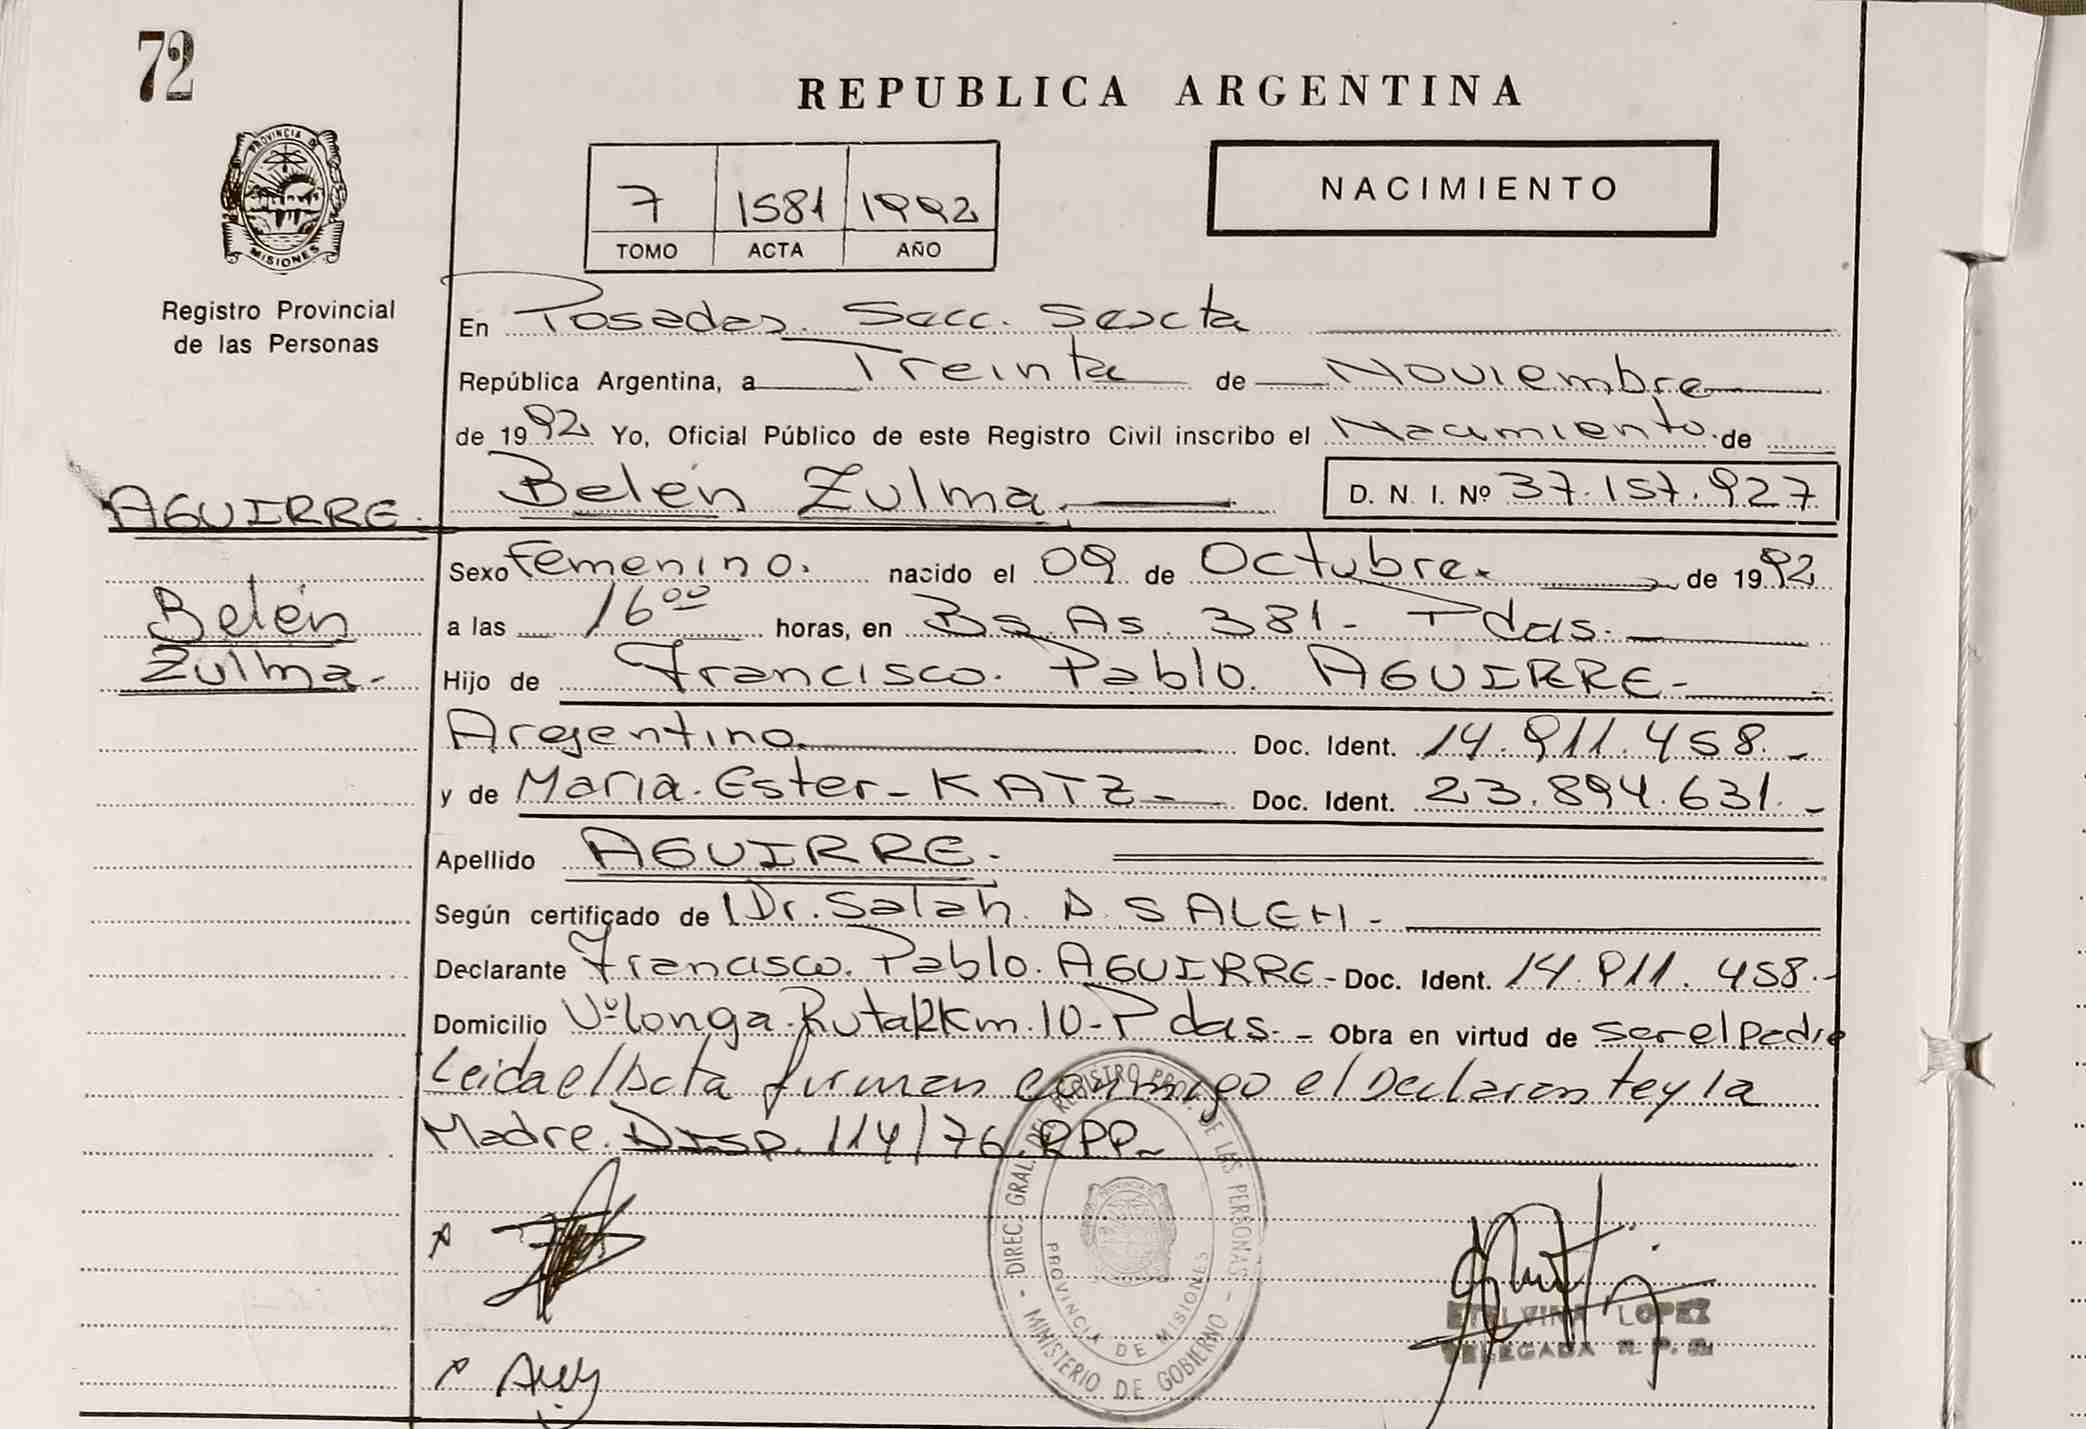 72
REPUBLICA ARGENTINA
PROVINCIA DE MISIONES
7 1581 1992
TOMO ACTA AÑO
NACIMIENTO
Registro Provincial
de las Personas
En Posadas. Secc. Sexta
República Argentina, a Treinta de Noviembre
de 1992 Yo, Oficial Público de este Registro Civil inscribo el Nacimiento de
Belén Zulma. D. N. I. Nº 37.157.927
AGUIRRE.
Belén
Zulma.-
Sexo Femenino. nacido el 09 de Octubre. de 1992
a las 16 00 horas, en Bs. As. 381- Pdas.
Hijo de Francisco. Pablo. AGUIRRE-
Argentino. Doc. Ident. 14.911.458.-
y de Maria. Ester- KATZ- Doc. Ident. 23.894.631.-
Apellido AGUIRRE.
Según certificado de Dr. Salah. D. SALEH-
Declarante Francisco. Pablo. AGUIRRE- Doc. Ident. 14.911.458.-
Domicilio Vº longa. Ruta Km. 10- Pdas.- Obra en virtud de ser el padre
Leida el Acta firman conmigo el Declarante y la
Madre. Disp. 114/76. RPP-
DIREC. GRAL. DEL REGISTRO PROV. DE LAS PERSONAS
PROVINCIA DE MISIONES
- MINISTERIO DE GOBIERNO -
ETELVINA LOPEZ
DELEGADA R. P. P.